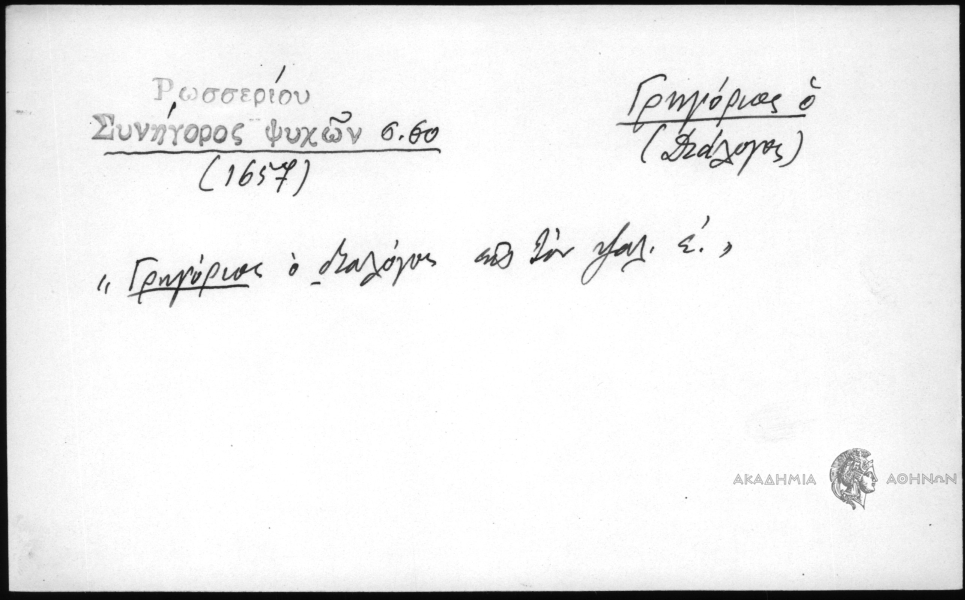 Ρωσσερίου
Συνήγορος ψυχῶν σ. 60
(1657)
Γρηγόριος ὁ
(Διάλογος)
"Γρηγόριος ὁ διαλόγος εἰς τὸν ψαλ. ε΄."
ΑΚΑΔΗΜΙΑ ΑΘΗΝΩΝ